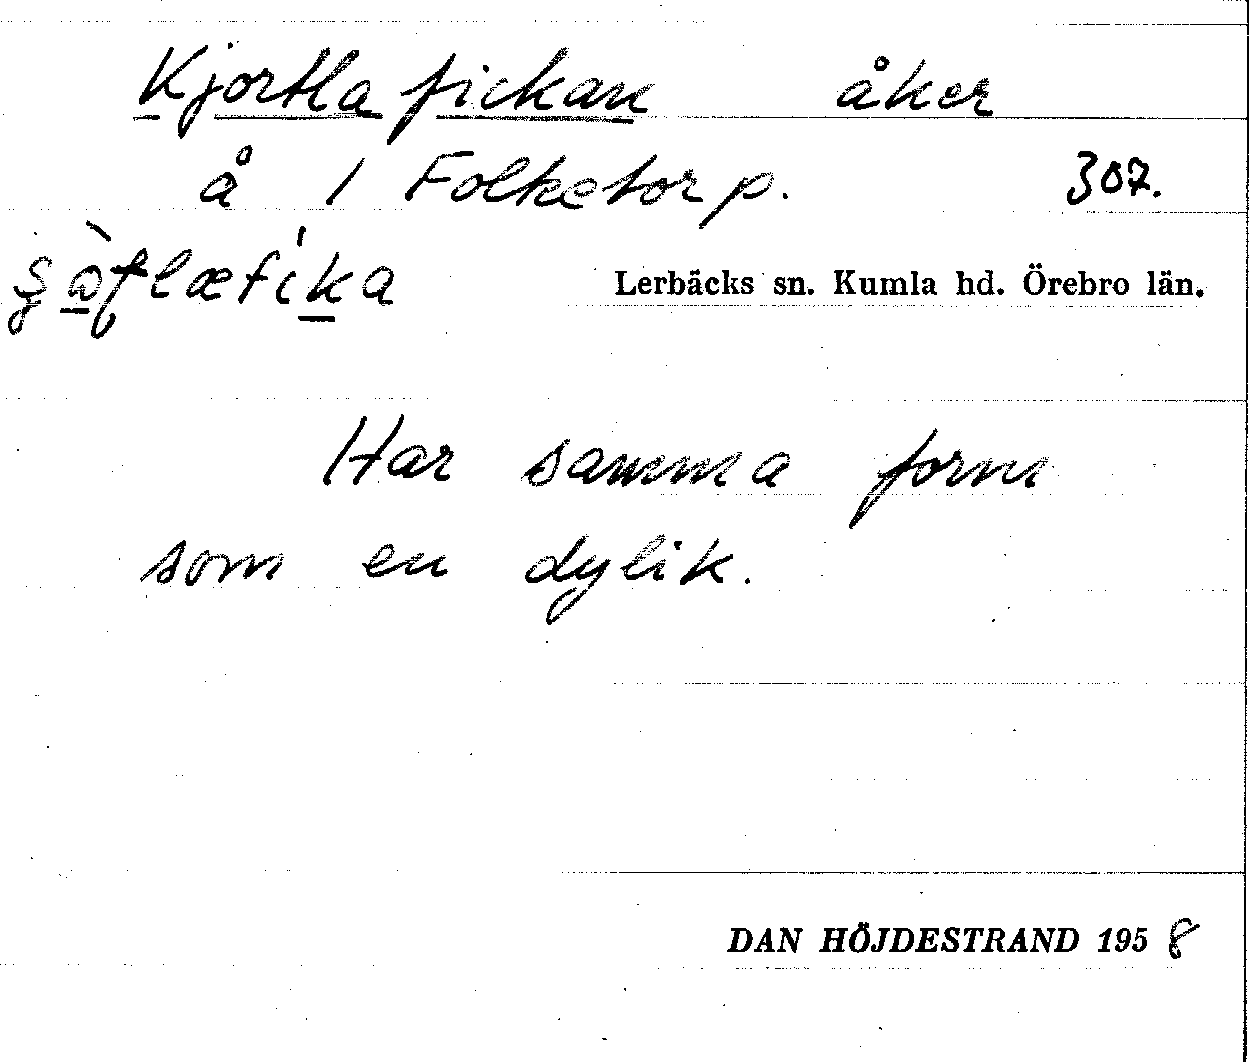 Kjortla fickan åker
å 1 Folketorp. 307.
Lerbäcks sn. Kumla hd. Örebro län.
Har samma form
som en dylik.
DAN HÖJDESTRAND 1958